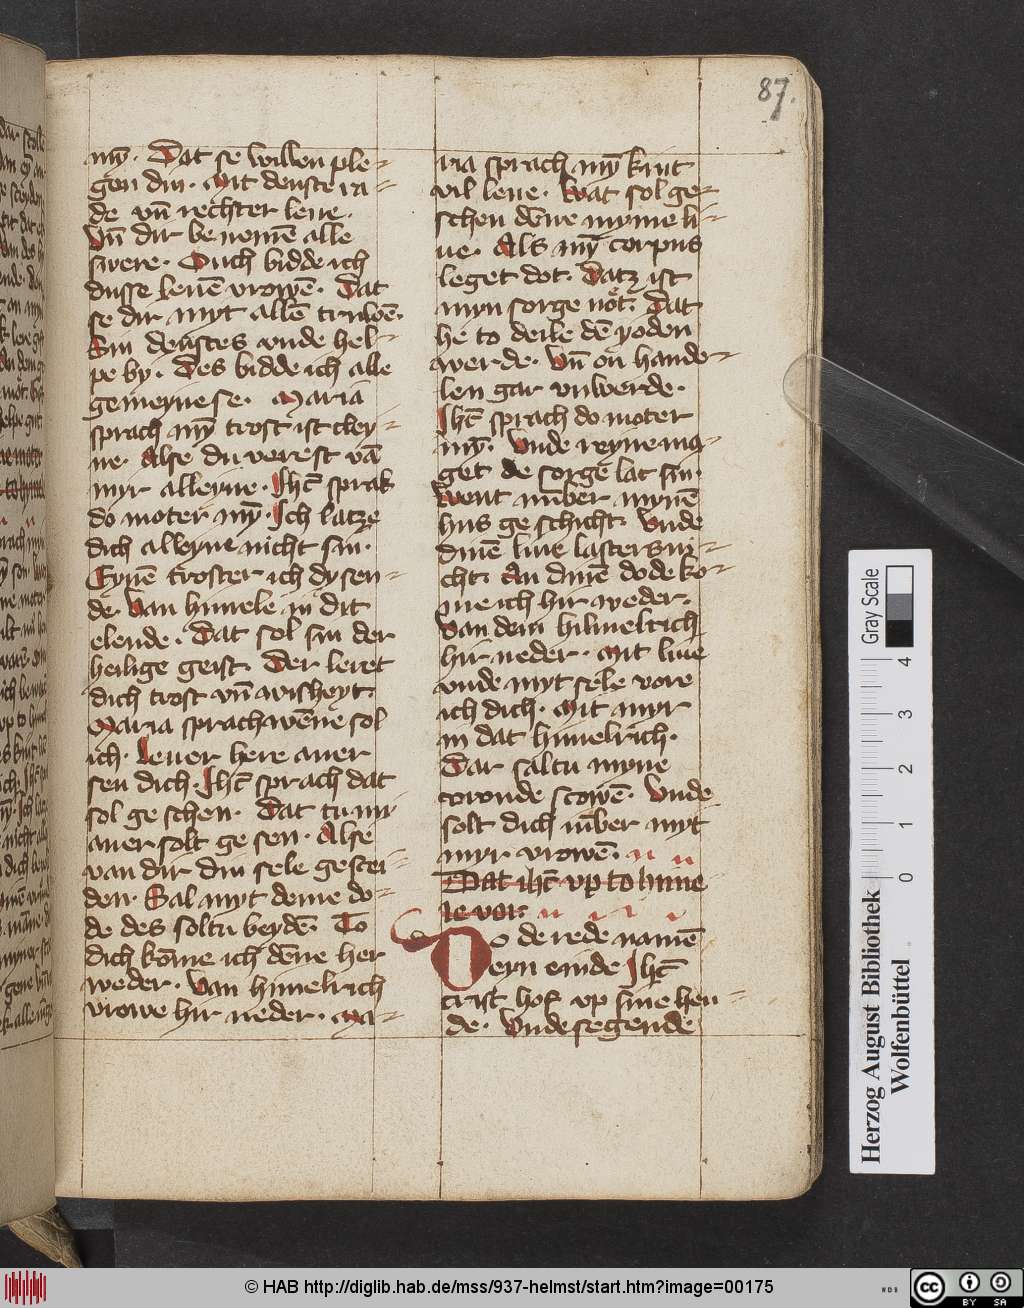 87.
mȳ. Dat se willen ple-
gen din. Mit denste ra-
de vn̄ rechter leue.
Vn̄ dir benemē alle
swere. Ouch bidde ich
dusse leuē vrowē. Dat
se dir myt allē truwē.
Sin deystes vnde hel-
pe by. Des bidde ich alle
gemeynese. Maria
sprach mȳ trost ist cley-
ne. Alse du verest vā
myr alleyne. Ihc̄ sprak
do moter mȳ. Ich latze
dich alleyne nicht sin.
Eynē troster ich dy sen-
de. Van himele in dit
elende. Dat sol sin der
heilige geist. Der leret
dich trost vn̄ wisheyt.
Maria sprach wēne sol
ich. Leuer here auer
sen dich. Ihc̄ sprach dat
sol geschen. Dat tu mi
auer solt gesen. Alse
van dir din sele geschei-
den. Sal myt deme do-
de des soltu beydē. To
dich kōme ich dēne her
weder. Van himelrich
vrowe hir neder. Ma-
ria sprach mȳ kint
vil leue. Wat sol ge-
schen dēne myme li-
ue. Als mȳ corpus
leget dot. Datz ist
myn sorge vn̄ not. Dat
he to deile dē yoden
werde. Vn̄ on hande-
len gar vnwerde.
Ihc̄ sprach do moter
mȳ. Vnde reyne ma-
get de sorgē lat sin.
Went nūber mynē
hus geschicht. Vnde
dinē liue lasters ni-
cht. An dinē dode ko-
me ich hir weder.
Van dem hilmelrich
hir neder. Mit liue
vnde myt sele vore
ich dich. Mit myr
in dat himelrich.
Dar saltu myne
coronde scowē. Vnde
solt dich iūber myt
myr vrowē.
Dat ihc̄ vp to hime
le vor.
Do de rede namē
eyn einde Ihc̄
crist hof vp sine hen-
de. Vnde segende
Gray Scale
0 1 2 3 4
Herzog August Bibliothek
Wolfenbüttel
© HAB http://diglib.hab.de/mss/937-helmst/start.htm?image=00175
WDB
cc BY SA